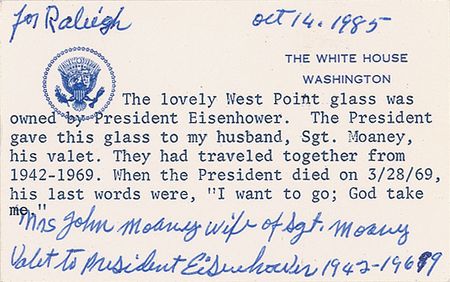 for Raleigh
oct 14. 1985
THE WHITE HOUSE
WASHINGTON
The lovely West Point glass was
owned by President Eisenhower. The President
gave this glass to my husband, Sgt. Moaney,
his valet. They had traveled together from
1942-1969. When the President died on 3/28/69,
his last words were, "I want to go; God take
me."
Mrs John Moaney wife of Sgt. Moaney
Valet to President Eisenhower 1942-1969